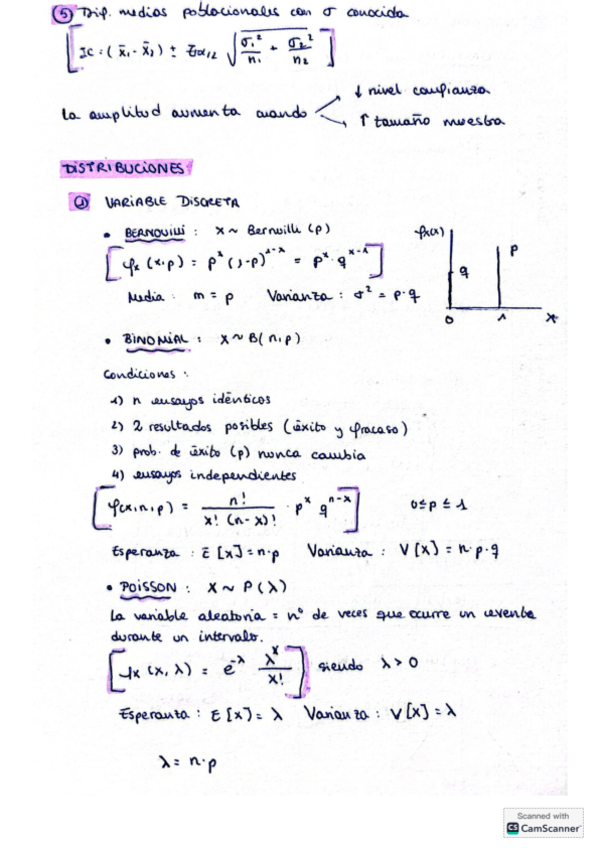 ⑤ Dif. medias poblacionales con σ conocida
IC = (x̄₁ - x̄₂) ± Zα/2 √(σ₁²/n₁ + σ₂²/n₂)
La amplitud aumenta cuando
↓ nivel confianza
↑ tamaño muestra
DISTRIBUCIONES
① VARIABLE DISCRETA
• BERNOUILLI : x ~ Bernuilli (p)
fx (x,p) = pˣ (1-p)¹⁻ˣ = pˣ · q¹⁻ˣ
Media : m = p Varianza : σ² = p · q
fx(x)
P
q
0 1 x
• BINOMIAL : x ~ B(n,p)
Condiciones :
1) n ensayos idénticos
2) 2 resultados posibles (éxito y fracaso)
3) prob. de éxito (p) nunca cambia
4) ensayos independientes
f(x,n,p) = n! / x! (n-x)! · pˣ qⁿ⁻ˣ 0 ≤ p ≤ 1
Esperanza : E [x] = n·p Varianza : V [x] = n·p·q
• POISSON : X ~ P(λ)
La variable aleatoria = nº de veces que ocurre un evento
durante un intervalo.
fx (x, λ) = e^-λ λˣ / x! siendo λ > 0
Esperanza : E [x] = λ Varianza : V[x] = λ
λ = n·p
Scanned with
CS CamScanner